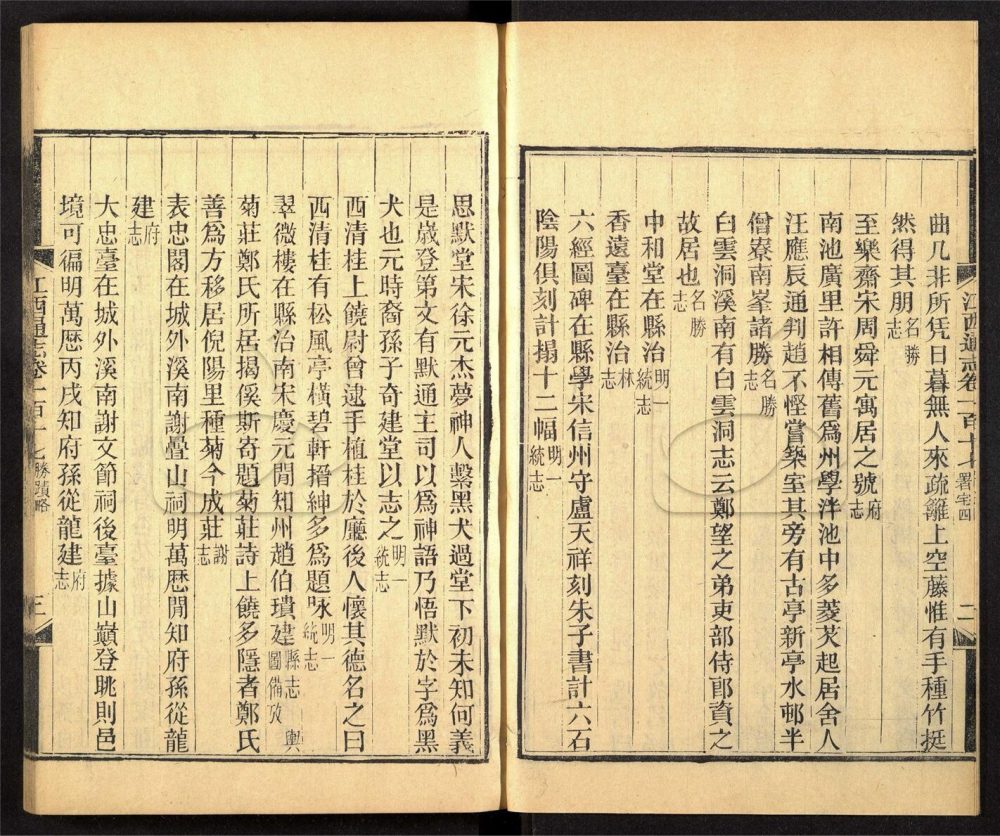 曲几非所凭日暮無人來疏籬上空藤惟有手種竹挺
然得其朋名勝志
至樂齋宋周舜元寓居之號府志
南池廣里許相傳舊爲州學泮池中多菱芡起居舍人
汪應辰通判趙不慳嘗築室其旁有古亭新亭水邨半
僧寮南峯諸勝名勝志
白雲洞溪南有白雲洞志云鄭望之弟吏部侍郎資之
故居也名勝志
中和堂在縣治明一統志
香遠臺在縣治林志
六經圖碑在縣學宋信州守盧天祥刻朱子書計六石
陰陽俱刻計搨十二幅明一統志
江西通志卷一百十七 署宅四 二
思默堂宋徐元杰夢神人繫黑犬過堂下初未知何義
是歲登第文有默通主司以爲神語乃悟默於字爲黑
犬也元時裔孫子奇建堂以志之明一統志
西清桂上饒尉曾逮手植桂於廳後人懷其德名之曰
西清桂有松風亭橫碧軒搢紳多爲題咏明一統志
翠微樓在縣治南宋慶元閒知州趙伯瓚建縣志輿圖備攷
菊莊鄭氏所居揭傒斯寄題菊莊詩上饒多隱者鄭氏
善爲方移居倪陽里種菊今成莊謝志
表忠閣在城外溪南謝疊山祠明萬厯閒知府孫從龍
建府志
大忠臺在城外溪南謝文節祠後臺據山巔登眺則邑
境可徧明萬厯丙戌知府孫從龍建府志
江西通志卷一百十七 勝蹟略 三